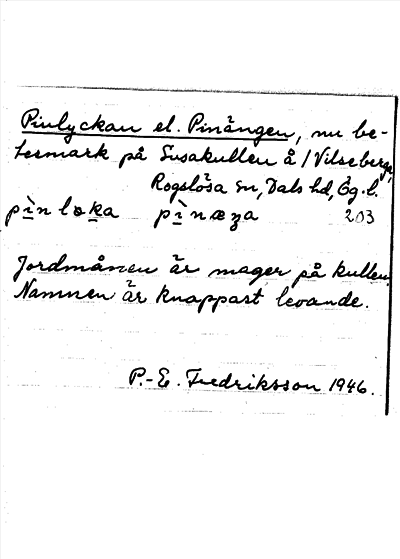 Pinlyckan el. Pinängen, nu be-
tesmark på Susakullen å /Vilseberga,
Rogslösa sn, Dals hd, Ög. l.
pìn lɷka pìnæʒa 203
Jordmånen är mager på kullen.
Namnen är knappast levande.
P.-E. Fredriksson 1946.